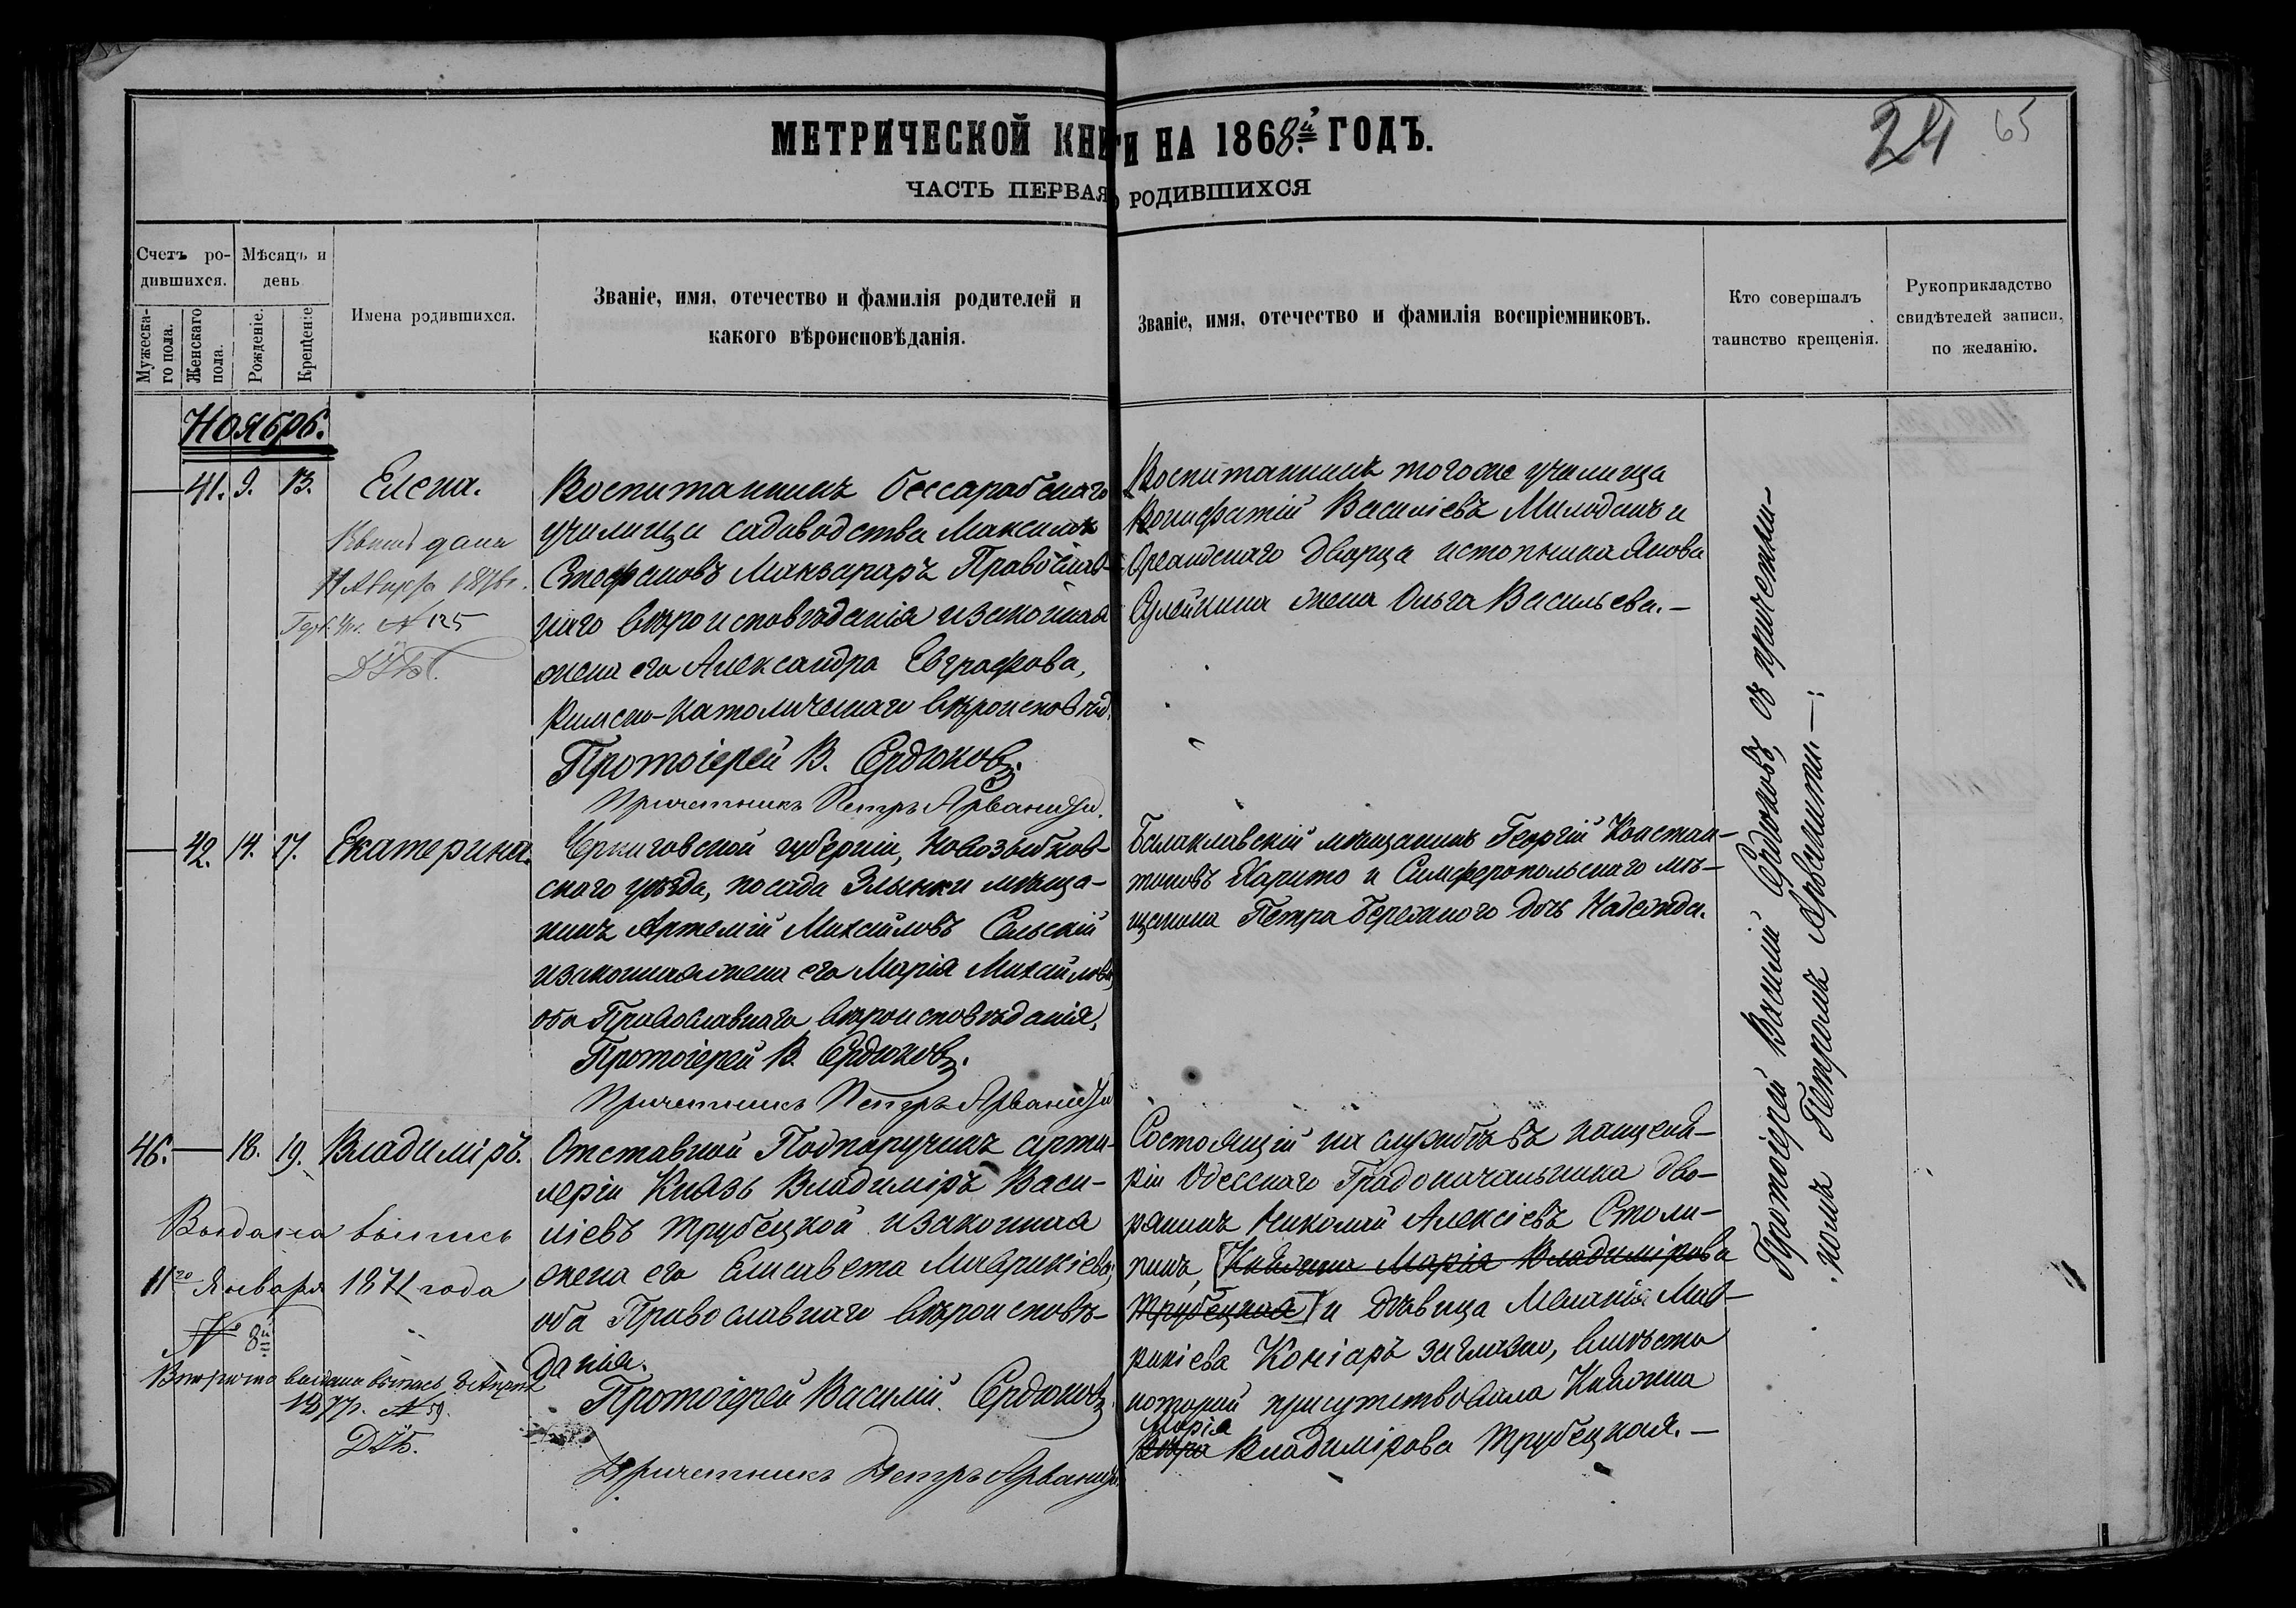 МЕТРИЧЕСКОЙ КНИГИ НА 1868й ГОДЪ.
24
65
ЧАСТЬ ПЕРВАЯ О РОДИВШИХСЯ
Счетъ родившихся.
Мужескаго пола.
Женскаго пола.
Мѣсяцъ и день
Рожденіе.
Крещеніе
Имена родившихся.
Званіе, имя, отечество и фамилія родителей и
какого вѣроисповѣданія.
Званіе, имя, отечество и фамилія воспріемниковъ.
Кто совершалъ
таинство крещенія.
Рукоприкладство
свидѣтелей записи,
по желанію.
Ноябрь.
41. 9. 13. Елена.
дана
№ 125
Воспитанникъ Бессарабскаго
училища садоводства Максимъ
Стефановъ Макзараръ Православ-
наго вѣроисповѣданія и законная
жена его Александра Евграфова,
Римско-католическаго вѣроисповѣд.
Протоіерей В. Сердюковъ.
Причетникъ Петръ Арваниди.
Воспитанникъ тогоже училища
Вонифатій Василіевъ Милодинъ и
Ореандскаго Дворца истопника Якова
Олейкина жена Ольга Васильева.—
42. 14. 17. Екатерина.
Черниговской губерніи, Новозыбков-
скаго уѣзда, посада Злынки мѣща-
нинъ Артемій Михайловъ Сельскій
и законная жена его Марія Михайлова,
оба Православнаго вѣроисповѣданія,
Протоіерей В. Сердюковъ.
Причетникъ Петръ Арваниди
Балаклавскій мѣщанинъ Георгій Констан-
тиновъ Харито и Симферопольскаго мѣ-
щанина Петра Бережного дочь Надежда.
46. — 18. 19. Владиміръ.
Выдана выпись
11го Января 1871 года
№ 8й
Вторично выдана выпись
1877г. № 59.
Отставной Подпоручикъ арти-
леріи Князь Владиміръ Васи-
ліевъ Трубецкой и законная
жена его Елисавета Маврикіева,
оба Православнаго вѣроисповѣ-
данія.
Протоіерей Василій Сердюковъ.
Причетникъ Петръ Арваниди.
Состоящій на службѣ въ канцеля-
ріи Одесскаго Градоначальника дво-
рянинъ Николай Алексіевъ Столи-
пинъ, [Княжна Марія Владимірова
Трубецкая] и дѣвица Меланія Мав-
рикіева Коніаръ заглазно, вмѣсто
которой присутствовала Княжна
Марія
Вѣра Владимірова Трубецкая.—
Протоіерей Василій Сердюковъ, съ причетни-
комъ Петромъ Арваниди.—